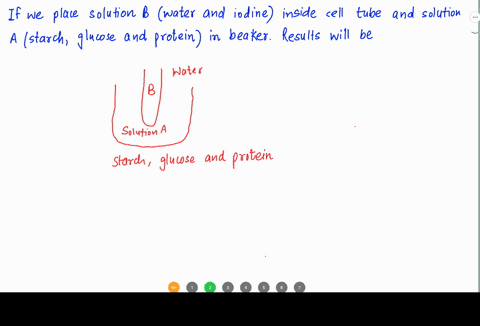 If we place solution B (water and iodine) inside cell tube and solution
A (starch, glucose and protein) in beaker. Results will be
Water
B
Solution A
starch, glucose and protein
1 2 3 4 5 6 7